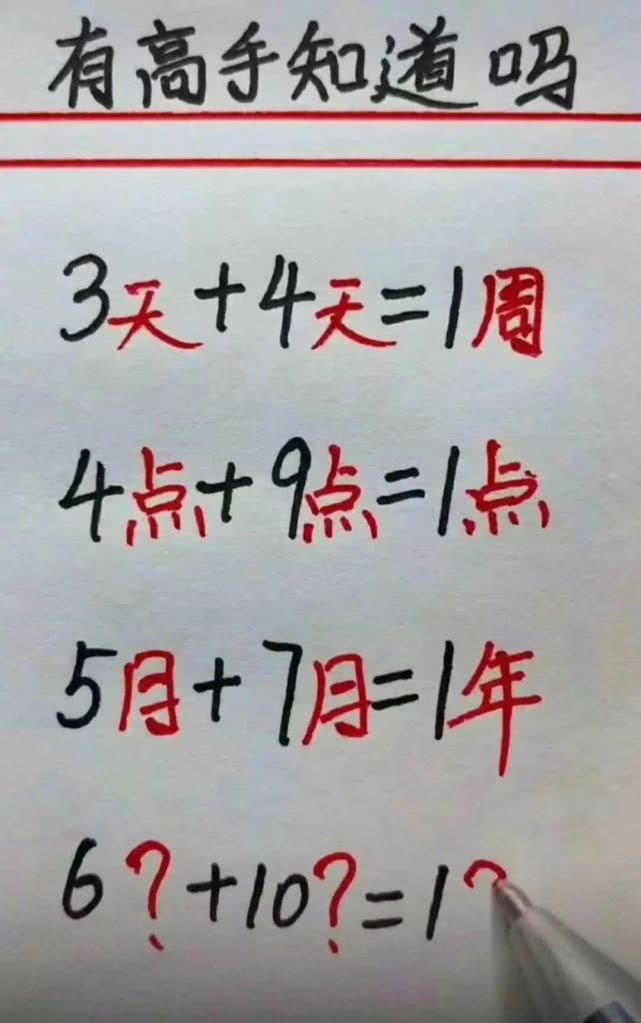 有高手知道吗
3天+4天=1周
4点+9点=1点
5月+7月=1年
6?+10?=1?